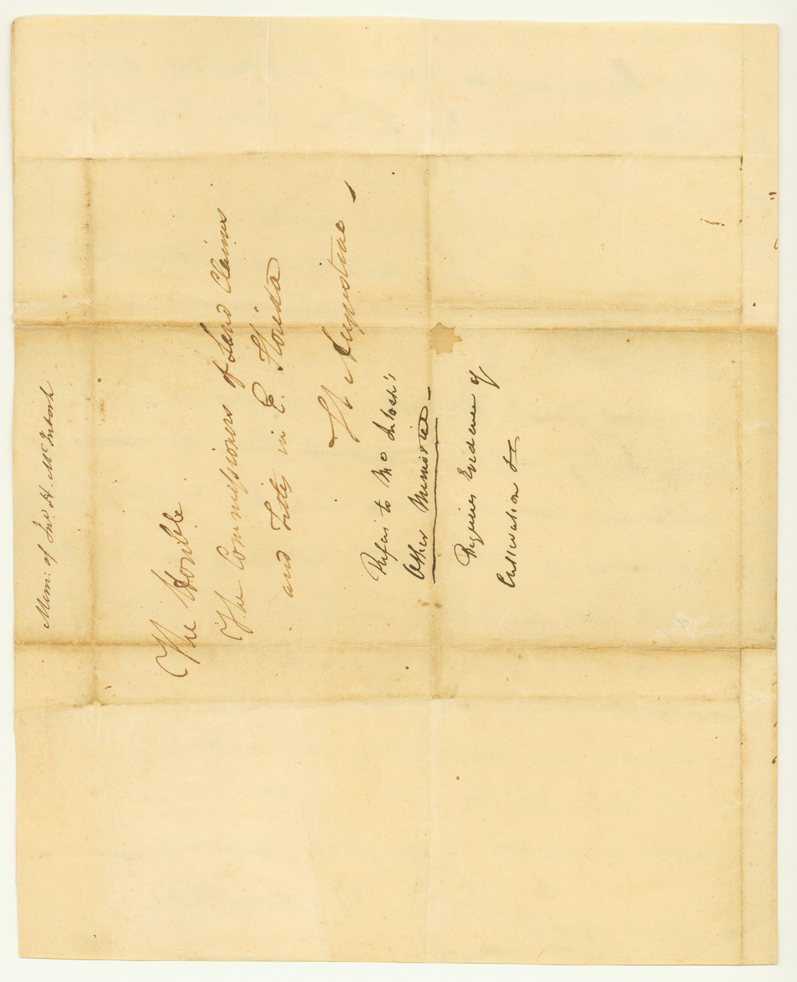 Mem: of Jno H. McIntosh
The Honble
The Commissioners of Land Claims
and Titles in E. Florida
St Augustine
Refers to McIntosh's
Other Memorial
Requires Evidence of
Cultivation &c